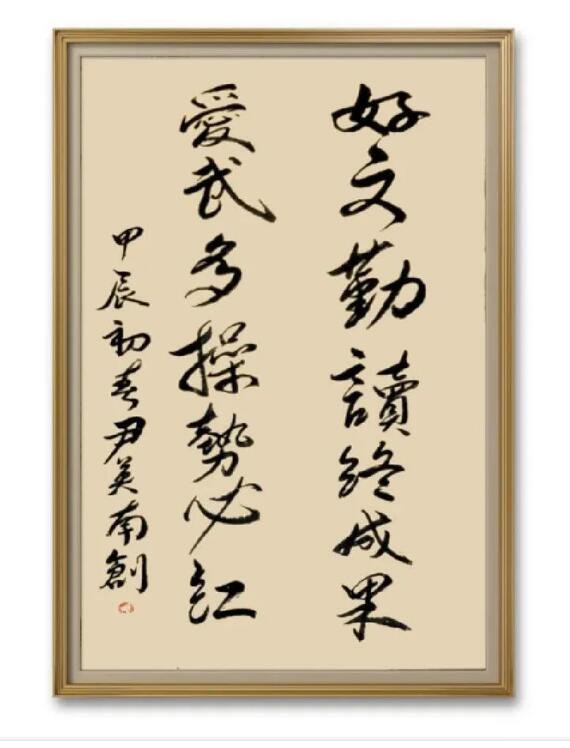 好文勤讀終成果
愛武多操勢必紅
甲辰初春尹英南創